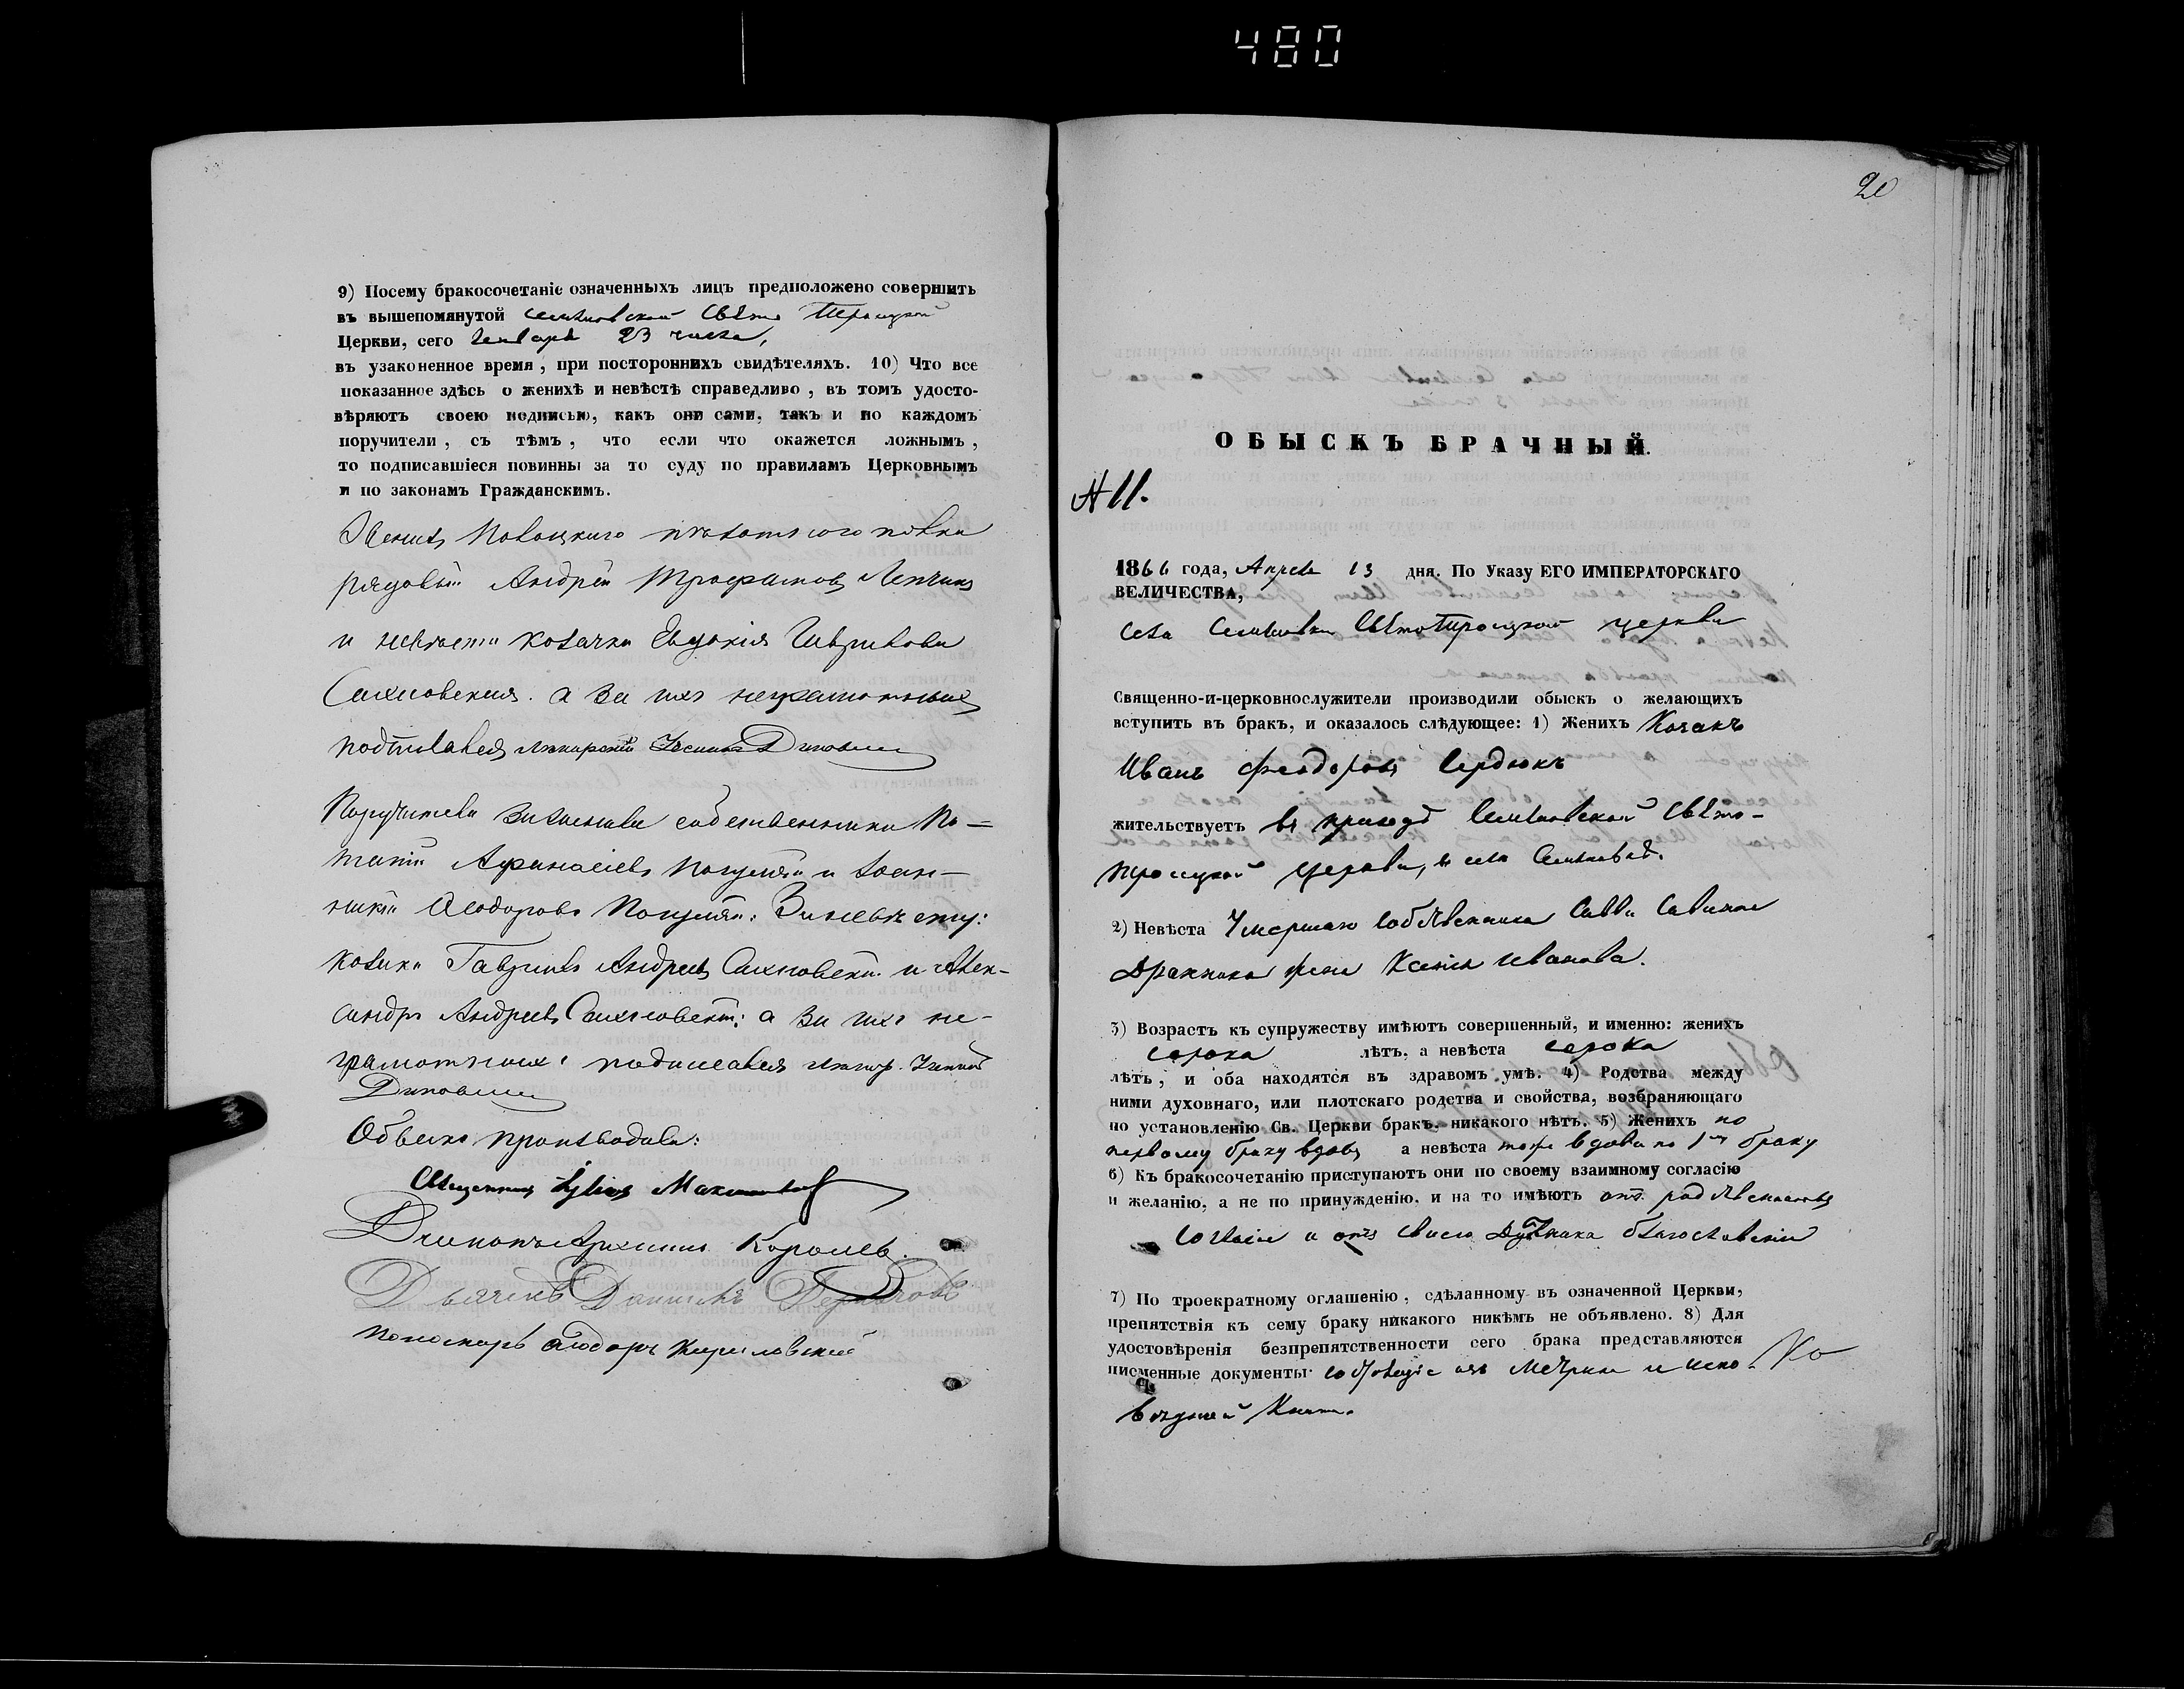 480
9) Посему бракосочетаніе означенныхъ лицъ предположено совершить
въ вышепомянутой Свято Троицкой
Церкви, сего Января 23 числа,
въ узаконенное время, при постороннихъ свидѣтеляхъ. 10) Что все
показанное здѣсь о женихѣ и невѣстѣ справедливо, въ томъ удосто-
вѣряютъ своею подписью, какъ они сами, такъ и по каждомъ
поручители, съ тѣмъ, что если что окажется ложнымъ,
то подписавшіеся повинны за то суду по правиламъ Церковнымъ
и по законамъ Гражданскимъ.
Женихъ Полоцкаго пѣхотнаго полка
рядовый Андрей Трофимовъ
и невѣста козачка Евдокія Гаврилова
Сахновская. а за ихъ неграмотныхъ
подписався
Поручители за жениха собственники По-
тапій Афанасіевъ и Іоан-
никій Ѳеодоровъ За невѣсту:
козаки Гавріилъ Андреевъ Сахновскій и Алек-
сандръ Андреевъ Сахновскій; а за ихъ не-
грамотныхъ подписався
Обыскъ производили:
Священникъ Максимовъ
Діаконъ Королевъ.
Дьячекъ Даніилъ
Пономарь Ѳеодоръ
20
ОБЫСКЪ БРАЧНЫЙ.
№ 11.
1866 года, Апреля 13 дня. По Указу ЕГО ИМПЕРАТОРСКАГО
ВЕЛИЧЕСТВА,
Села СвятоТроицкой церкви
Священно-и-церковнослужители производили обыскъ о желающихъ
вступить въ бракъ, и оказалось слѣдующее: 1) Женихъ Козакъ
Иванъ Феодоровъ Сердюкъ
жительствуетъ въ приходѣ Свято-
троицкой церкви, въ селѣ
2) Невѣста Умершаго собственника Саввы Савина
жена Ксенія Иванова.
3) Возрастъ къ супружеству имѣютъ совершенный, и именно: женихъ
сорока лѣтъ, а невѣста сорока
лѣтъ, и оба находятся въ здравомъ умѣ. 4) Родства между
ними духовнаго, или плотскаго родства и свойства, возбраняющаго
по установленію Св. Церкви бракъ, никакого нѣтъ. 5) Женихъ по
первому браку вдовъ а невѣста тоже вдова по 1му браку
6) Къ бракосочетанію приступаютъ они по своему взаимному согласію
и желанію, а не по принужденію, и на то имѣютъ отъ родственниковъ
согласіе и отъ своего Духовника благословеніе
7) По троекратному оглашенію, сдѣланному въ означенной Церкви,
препятствія къ сему браку никакого никѣмъ не объявлено. 8) Для
удостовѣренія безпрепятственности сего брака представляются
письменные документы: изъ Метрики и испо-
вѣдной Книги.